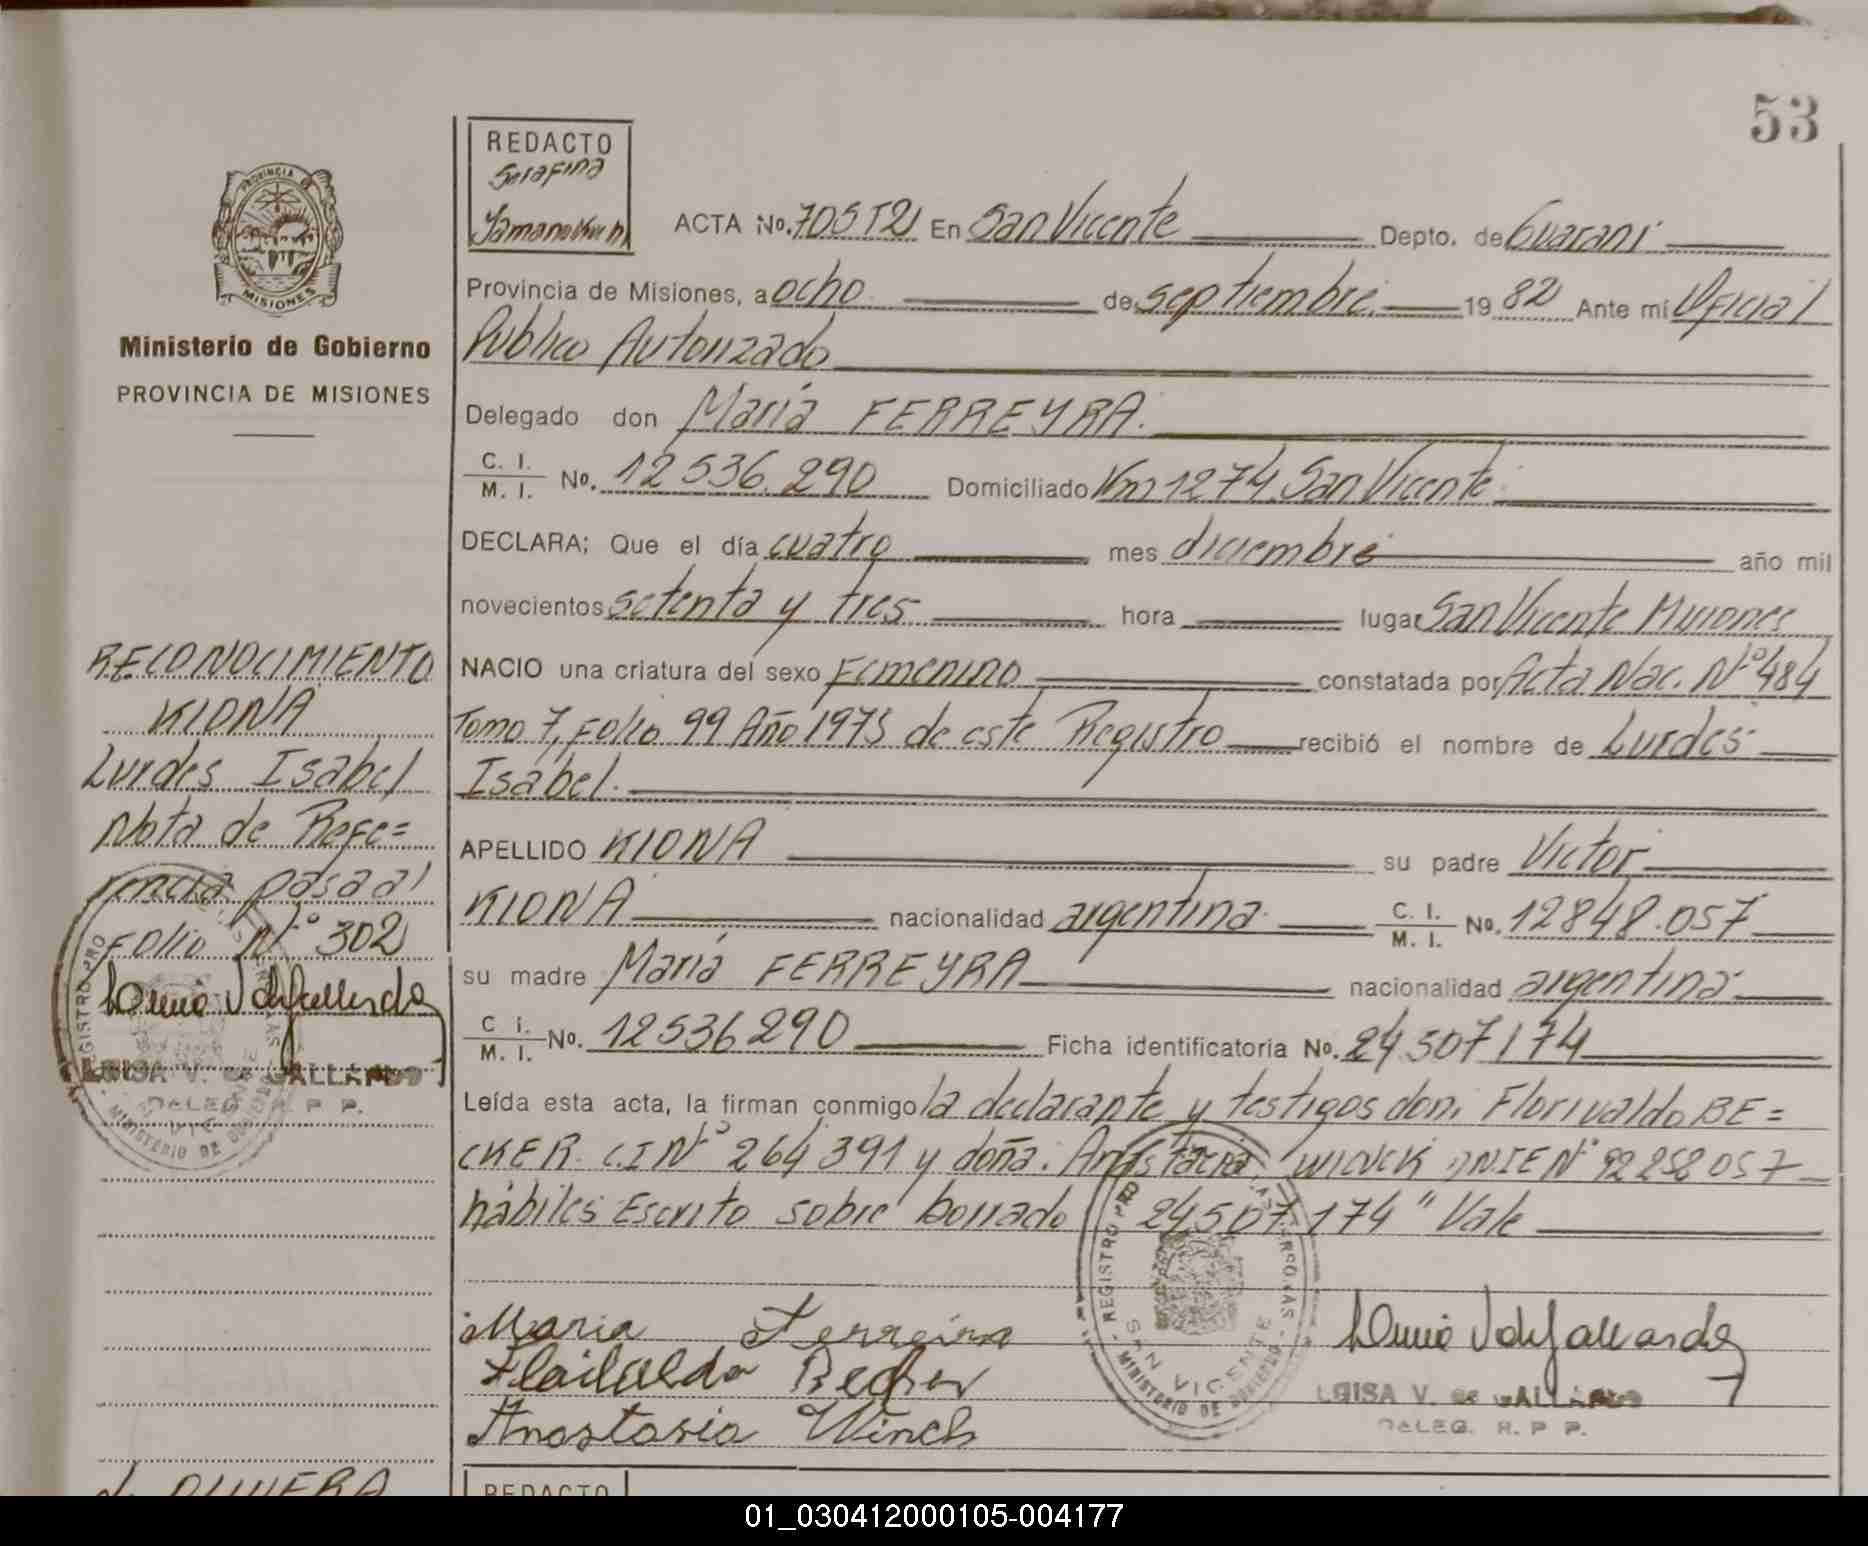 53
REDACTO
Serafina
Yamanokuchi
PROVINCIA
MISIONES
Ministerio de Gobierno
PROVINCIA DE MISIONES
ACTA No. 705 T2 En San Vicente Depto. de Guaraní
Provincia de Misiones, a ocho de septiembre 19 82 Ante mí Oficial
Público Autorizado
Delegado don María FERREYRA.
C. I. / M. I. No. 12 536.290 Domiciliado Km 1274 San Vicente
DECLARA; Que el día cuatro mes diciembre año mil
novecientos setenta y tres hora lugar San Vicente Misiones
NACIO una criatura del sexo Femenino constatada por Acta Nac. Nº 484
Tomo 7, Folio 99 Año 1973 de este Registro recibió el nombre de Lurdes
Isabel.
APELLIDO KIONA su padre Victor
KIONA nacionalidad argentina C. I. / M. I. No. 12848.057
su madre María FERREYRA nacionalidad argentina
C. I. / M. I. No. 12536290 Ficha identificatoria No. 24507174
Leída esta acta, la firman conmigo la declarante y testigos don. Florivaldo BE=
CKER. C.I Nº 264391 y doña. Anastacia WINCK DNIE Nº 92258057
hábiles Escrito sobre borrado "24507174" Vale
Maria Ferreira
Becker
Anastasia Winch
LUISA V. de GALLARDO
DELEG. R. P. P.
REGISTRO PRO
SAN VICENTE
MINISTERIO DE GOBIERNO
RECONOCIMIENTO
KIONA
Lurdes Isabel
Nota de Refe=
rencia pasa al
Folio Nº 302
LUISA V. de GALLARDO
DELEG. R. P. P.
REGISTRO PRO
MINISTERIO DE GOBIERNO
OLIVERA
REDACTO
01_030412000105-004177